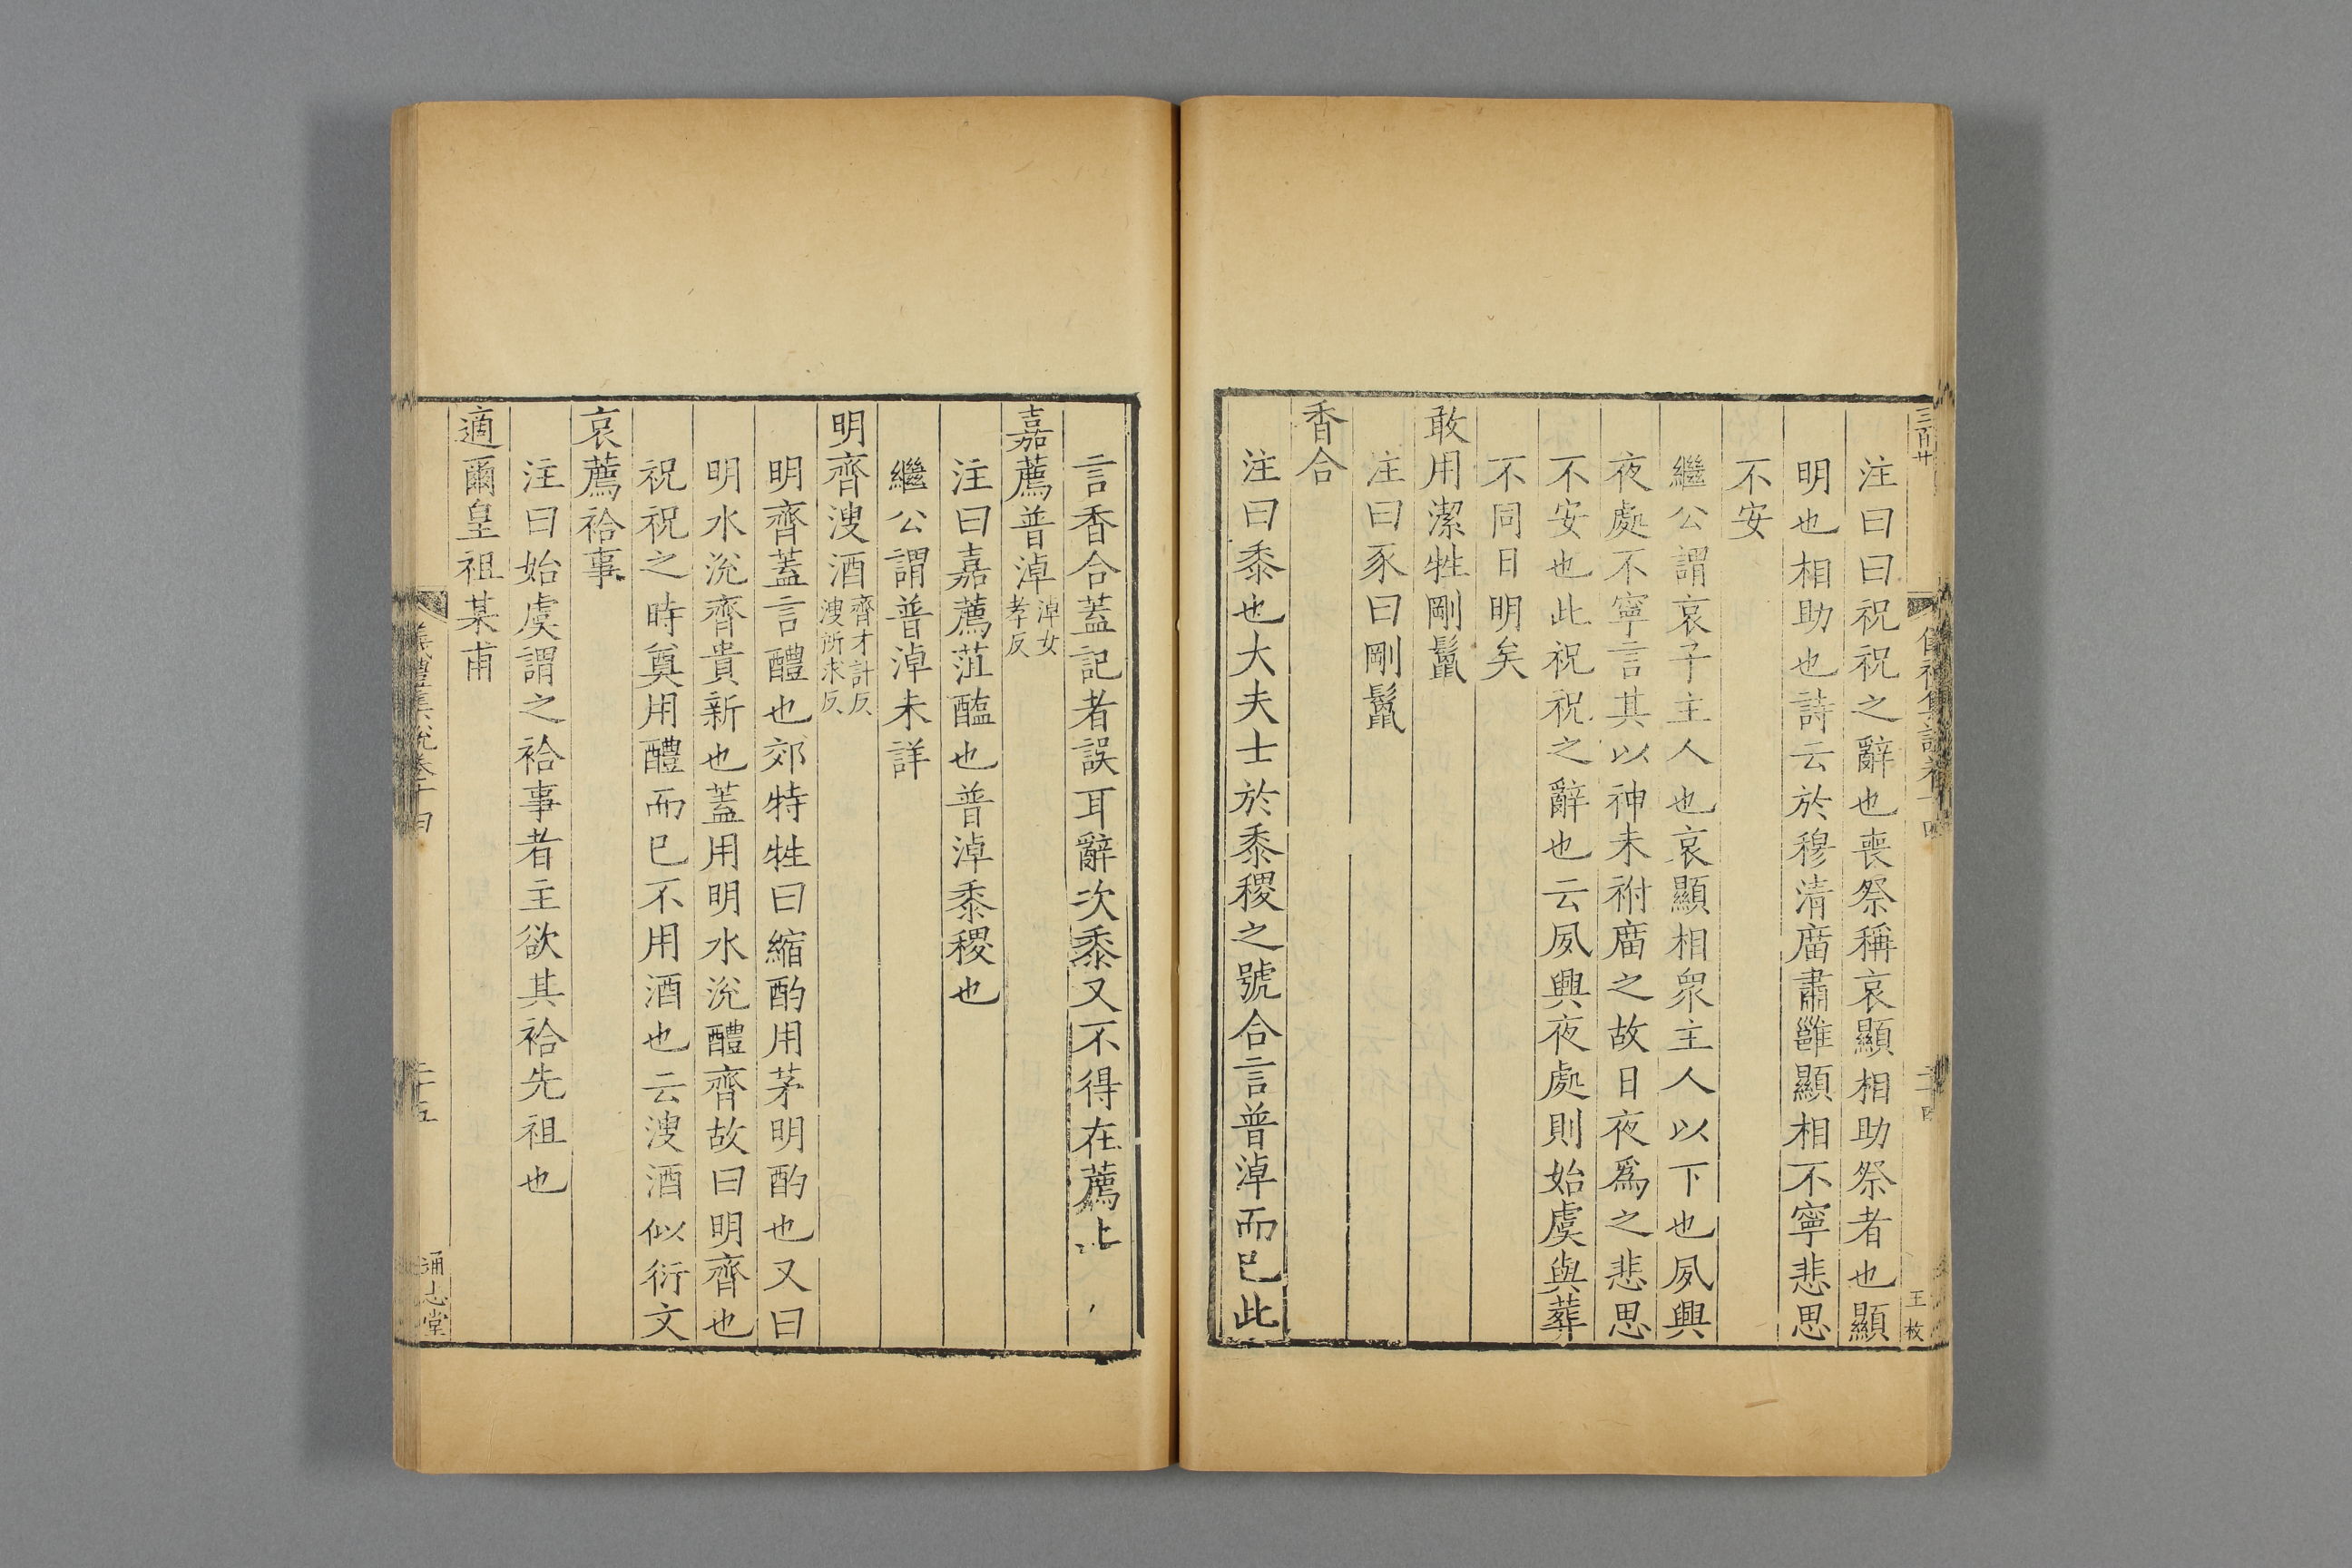 三百廿
注曰曰祝祝之辭也喪祭稱哀顯相助祭者也顯
明也相助也詩云於穆清廟肅雝顯相不寧悲思
不安
繼公謂哀子主人也哀顯相衆主人以下也夙興
夜處不寧言其以神未祔廟之故日夜爲之悲思
不安也此祝祝之辭也云夙興夜處則始虞與葬
不同日明矣
敢用潔牲剛鬣
注曰豕曰剛鬣
香合
注曰黍也大夫士於黍稷之號合言普淖而已此
王枚
言香合蓋記者誤耳辭次黍又不得在薦上
嘉薦普淖淖女孝反
注曰嘉薦菹醢也普淖黍稷也
繼公謂普淖未詳
明齊溲酒齊才計反溲所求反
明齊蓋言醴也郊特牲曰縮酌用茅明酌也又曰
明水涗齊貴新也蓋用明水涗醴齊故曰明齊也
祝祝之時奠用醴而已不用酒也云溲酒似衍文
哀薦祫事
注曰始虞謂之祫事者主欲其祫先祖也
適爾皇祖某甫
儀禮集說卷十四
二十五
通志堂